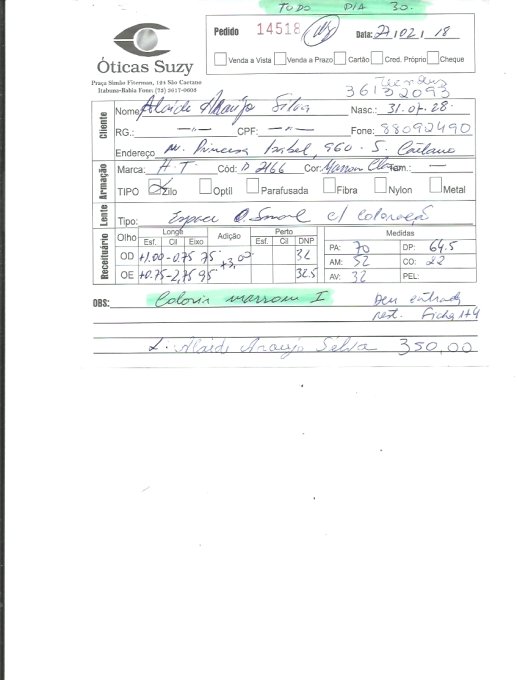 TUDO DIA 30.
Pedido 14518 Data: 27/02/18
Venda a Vista Venda a Prazo Cartão Cred. Próprio Cheque
Óticas Suzy
Praça Simão Fiterman, 124 São Caetano
Itabuna-Bahia Fone: (73) 3617-0603
36132093
Cliente
Nome: Alaide Araújo Silva Nasc.: 31.07.28.
RG.: — " — CPF: — " — Fone: 88092490
Endereço Av. Princesa Isabel, 960 - S. Caetano
Armação
Marca: H.T. Cód: D 2166 Cor: Marrom Claro Tam.: —
TIPO Zilo Optil Parafusada Fibra Nylon Metal
Lente
Tipo: Espace O. c/ coloração
Receituário
Olho Longe Adição Perto Medidas
Esf. Cil Eixo Esf. Cil DNP
OD +1.00 -0.75 75 +3,00 32
OE +0.75 -2,75 95 32.5
PA: 70 DP: 64.5
AM: 52 CO: 22
AV: 32 PEL:
OBS: Colorir marrom I Deu entrada
rest. Ficha 1+4
L. Alaide Araujo Silva 350,00